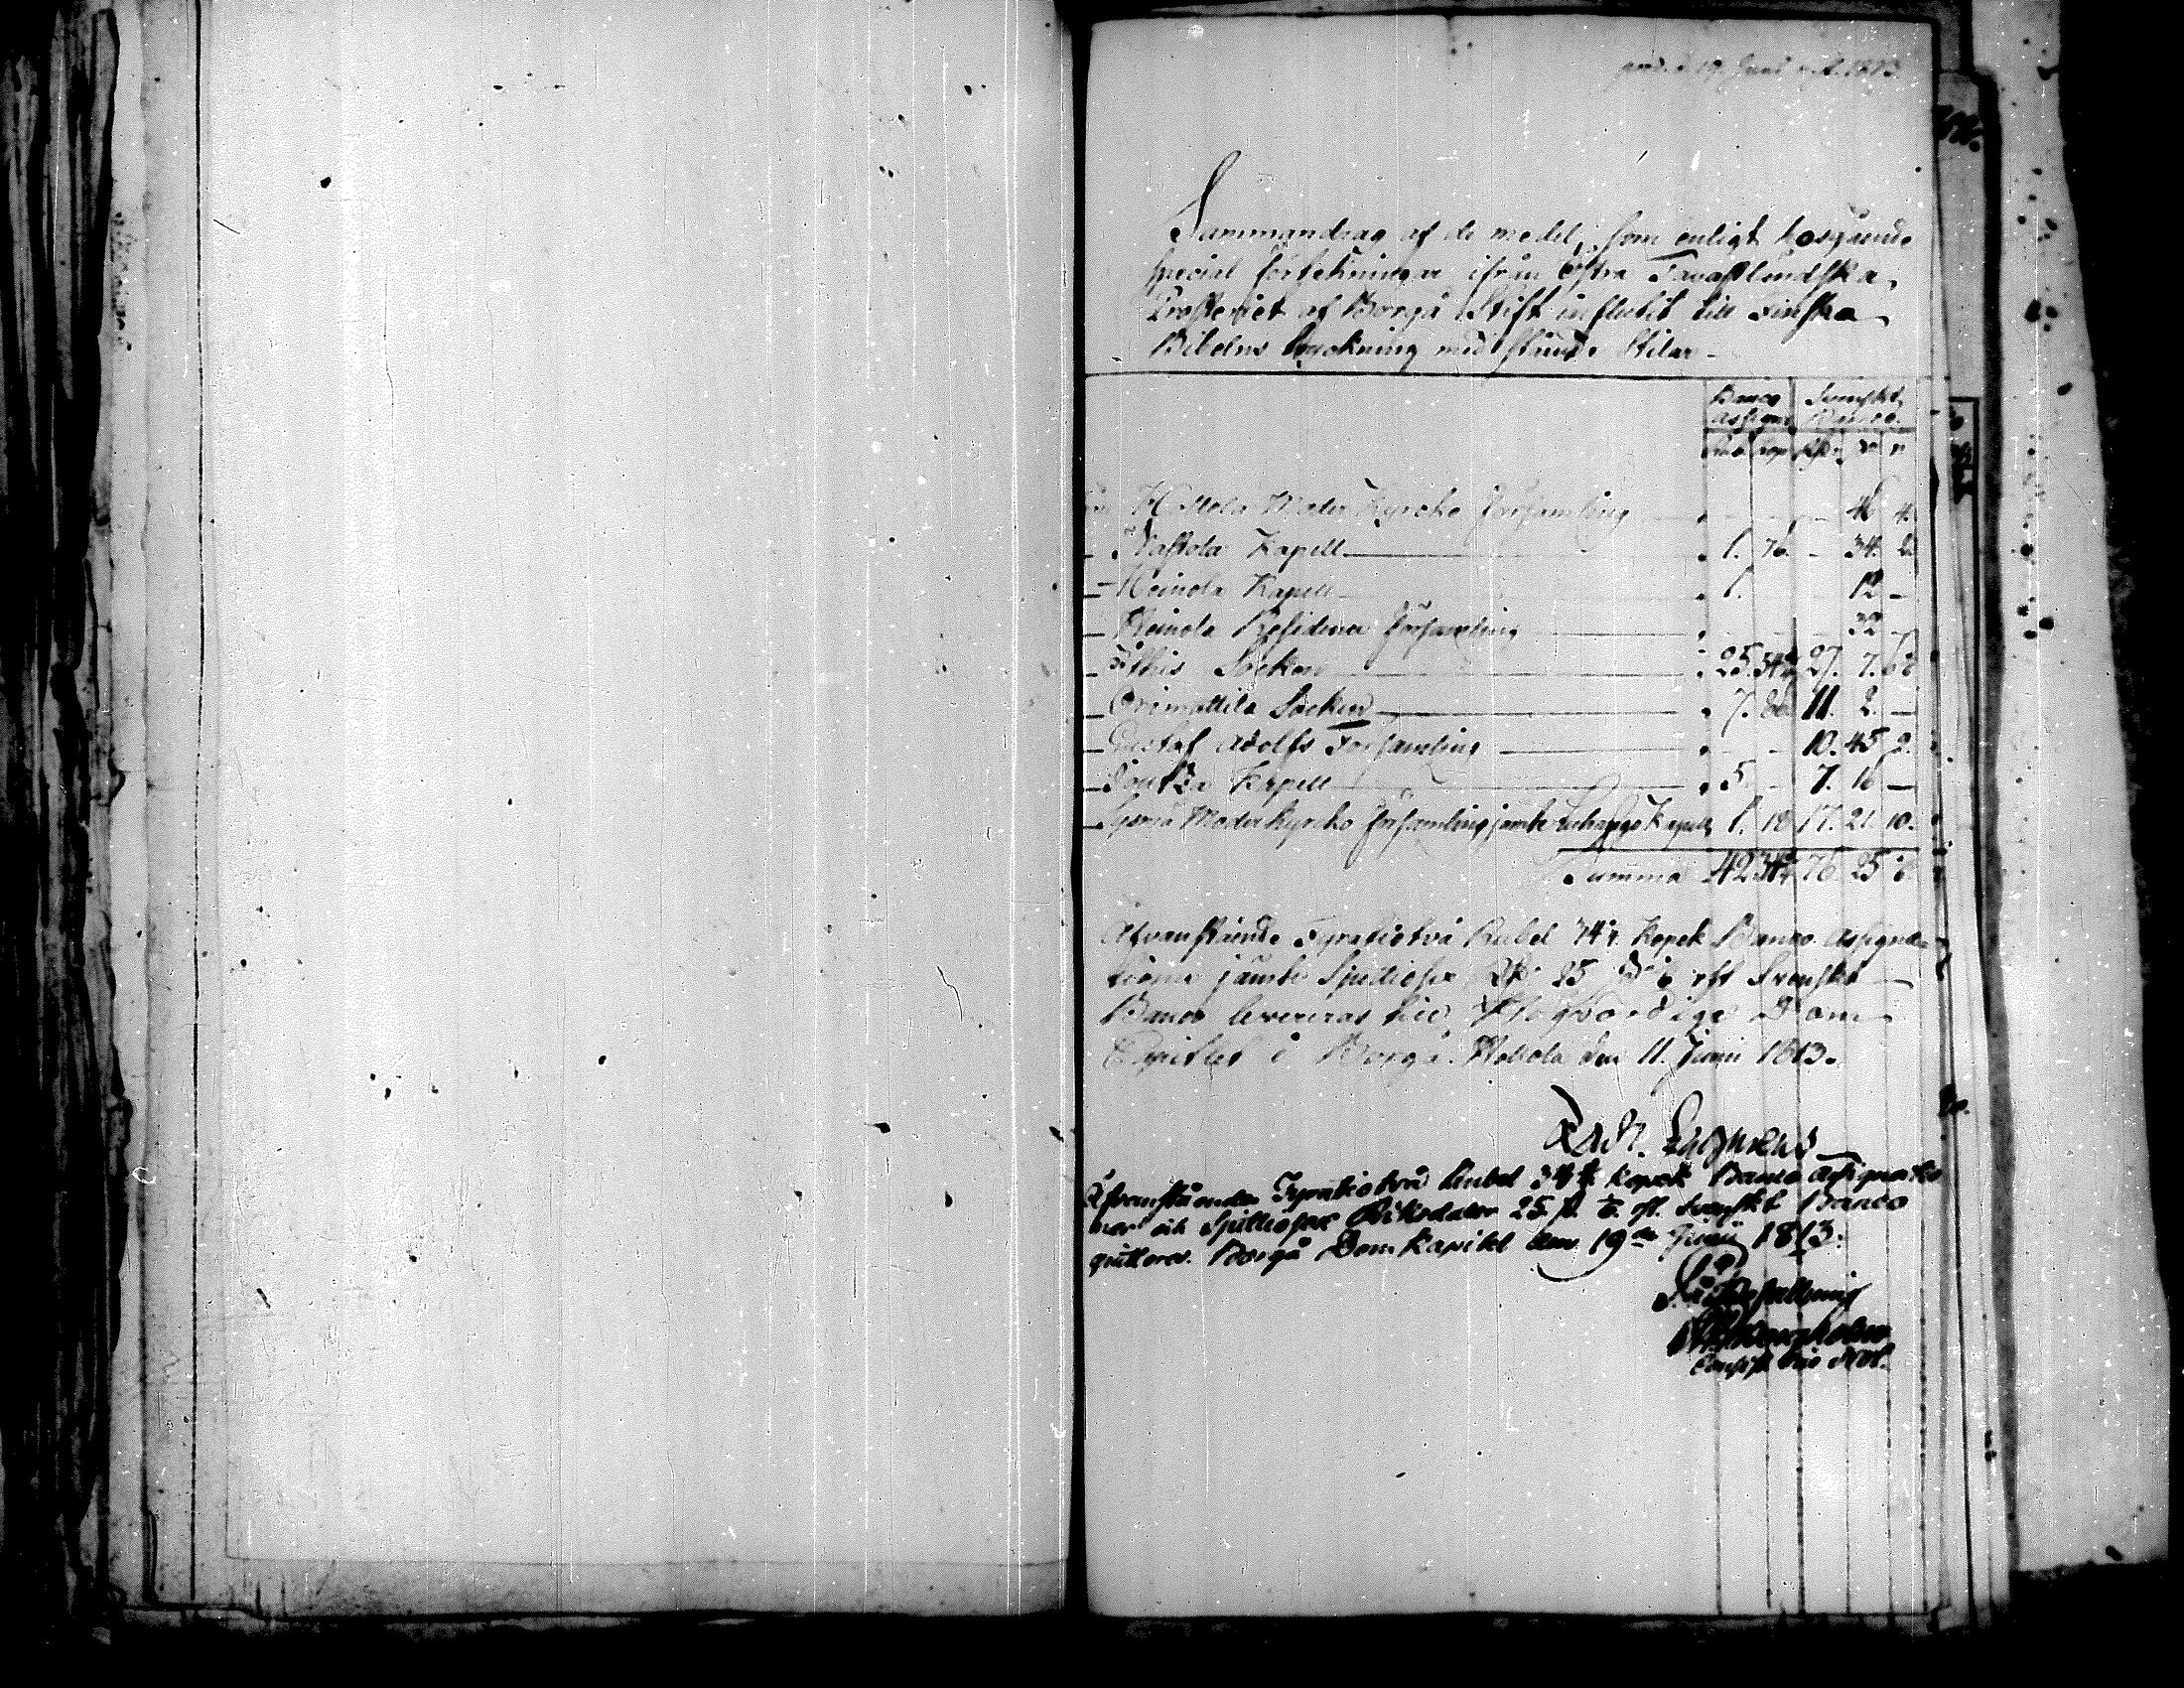 prod. d. 19. Juni 1813.
Sammandrag af de medel, som enligt hosgående
special förtekningar ifrån Östra Tavastländska
Prosteriet af Borgå Stift influtit till Finska
Bibelns tryckning med stående Stilar.
Banco Svenskt
Assign. Banco.
Rub. Kop. Rd. s. r.
Hollola Moder Kyrcko Församling 4.
Nastola Kapell 1. 76. 34. 2.
Heinola Kapell 1. 12
Heinola Residence Församling 32
Ithis Socken 25. 27. 7.
Orimattila Socken 7. 11. 2.
Gustaf Adolfs Församling 10. 45 2.
Kapell 5 7. 16
Sysmä Moder Kyrcko Församling jämte Kapell 1. 18 17. 21. 10.
Summa 42 34 76 25 6
Åfvanstående Fyratiotvå Rubel 34 Kopek Banco Assigna-
tioner jämte Sjuttiosex Rd 25 s 6 rst Svenskt
Banco levereras till Högvördige Dom-
Capitlet i Borgå. Hollola den 11. Junii 1813.
Åfvanstående Fyratiotvå Rubel 34 Kopek Banco Assignatio
ner och Sjuttiosex Riksdaler 25 s. 6. rst. Svenskt Banco
quitteras. Borgå Dom Kapitel den 19de Junii 1813.
På Befallning
Not.